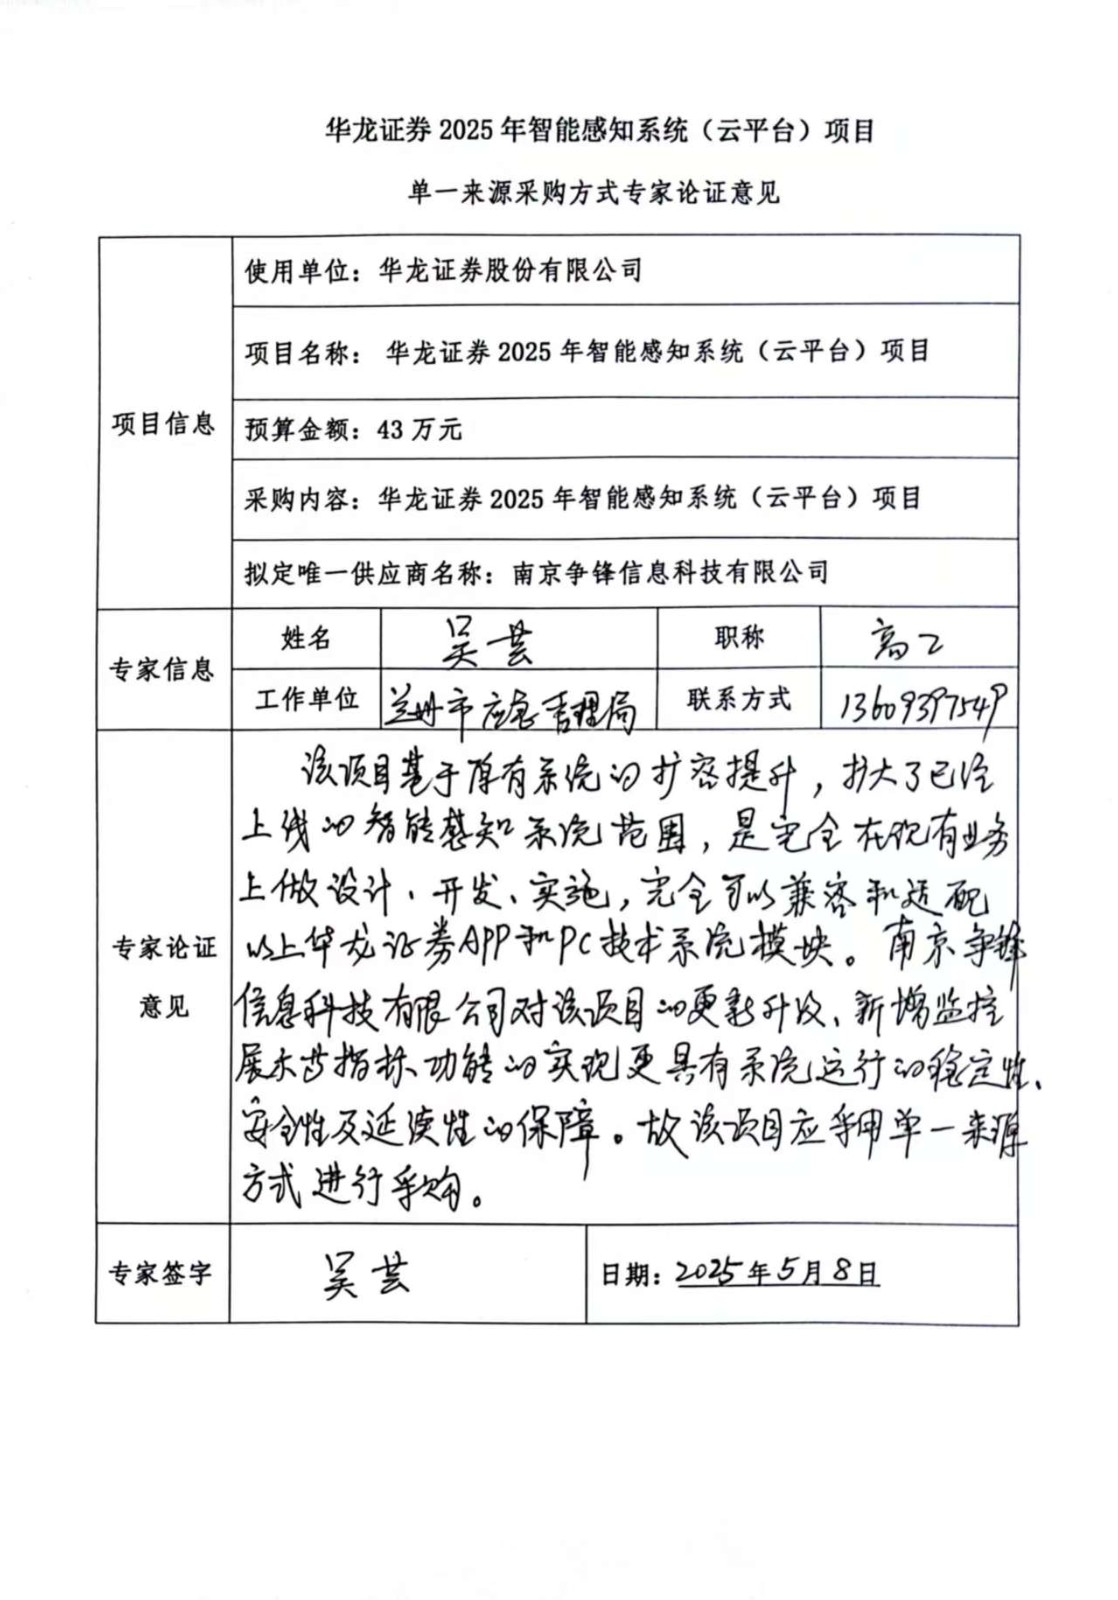 华龙证券 2025 年智能感知系统（云平台）项目
单一来源采购方式专家论证意见
项目信息
使用单位：华龙证券股份有限公司
项目名称： 华龙证券 2025 年智能感知系统（云平台）项目
预算金额：43 万元
采购内容：华龙证券 2025 年智能感知系统（云平台）项目
拟定唯一供应商名称：南京争锋信息科技有限公司
专家信息
姓名 吴芸 职称 高工
工作单位 兰州市应急管理局 联系方式 13609397549
专家论证
意见
该项目基于原有系统的扩容提升，扩大了已经
上线的智能感知系统范围，是完全在现有业务
上做设计、开发、实施，完全可以兼容和适配
以上华龙证券APP和PC技术系统模块。南京争锋
信息科技有限公司对该项目的更新升级、新增监控
展示等指标、功能的实现更具有系统运行的稳定性、
安全性及延续性的保障。故该项目应采用单一来源
方式进行采购。
专家签字 吴芸 日期：2025年5月8日